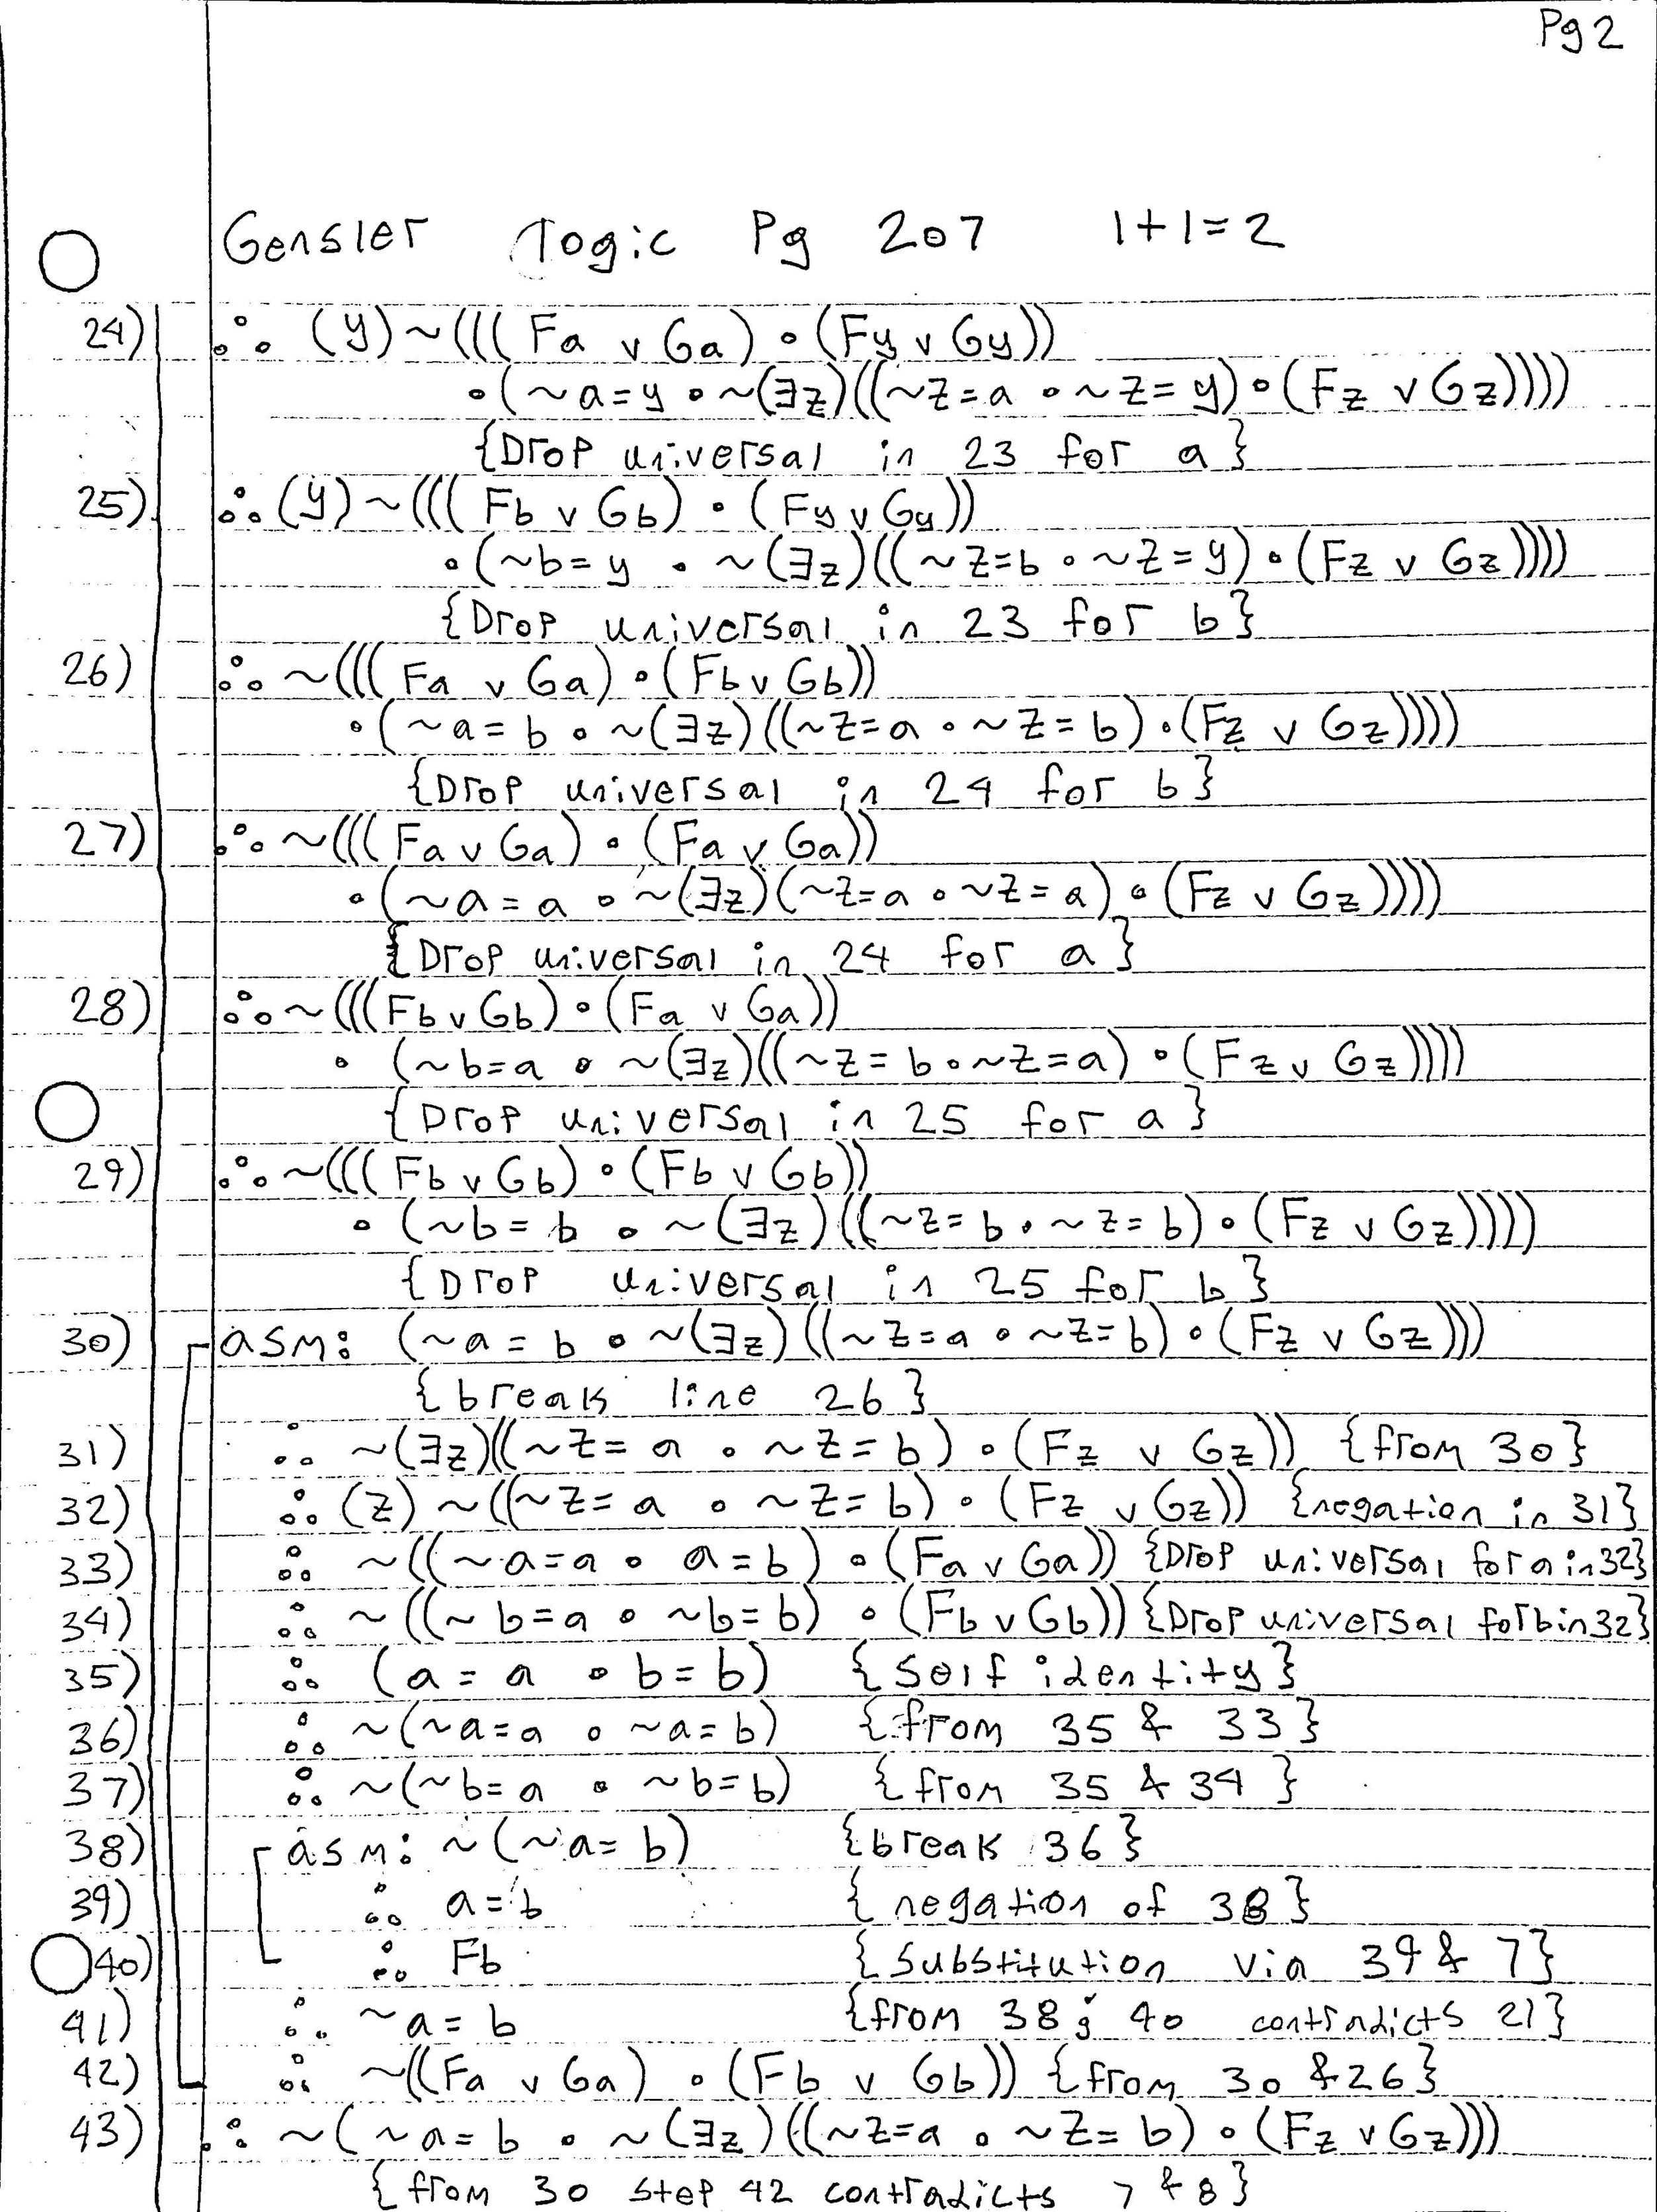 Pg 2
Gensler Logic Pg 207 1+1=2
24) ∴ (y)~(((Fa ∨ Ga) • (Fy ∨ Gy))
• (~a=y • ~(∃z)((~z=a • ~z=y) • (Fz ∨ Gz))))
{Drop universal in 23 for a}
25) ∴ (y)~(((Fb ∨ Gb) • (Fy ∨ Gy))
• (~b=y • ~(∃z)((~z=b • ~z=y) • (Fz ∨ Gz))))
{Drop universal in 23 for b}
26) ∴ ~(((Fa ∨ Ga) • (Fb ∨ Gb))
• (~a=b • ~(∃z)((~z=a • ~z=b) • (Fz ∨ Gz))))
{Drop universal in 24 for b}
27) ∴ ~(((Fa ∨ Ga) • (Fa ∨ Ga))
• (~a=a • ~(∃z)(~z=a • ~z=a) • (Fz ∨ Gz))))
{Drop universal in 24 for a}
28) ∴ ~(((Fb ∨ Gb) • (Fa ∨ Ga))
• (~b=a • ~(∃z)((~z=b • ~z=a) • (Fz ∨ Gz))))
{Drop universal in 25 for a}
29) ∴ ~(((Fb ∨ Gb) • (Fb ∨ Gb))
• (~b=b • ~(∃z)((~z=b • ~z=b) • (Fz ∨ Gz))))
{Drop universal in 25 for b}
30) asm: (~a=b • ~(∃z)((~z=a • ~z=b) • (Fz ∨ Gz)))
{break line 26}
31) ∴ ~(∃z)((~z=a • ~z=b) • (Fz ∨ Gz)) {from 30}
32) ∴ (z)~((~z=a • ~z=b) • (Fz ∨ Gz)) {negation in 31}
33) ∴ ~((~a=a • a=b) • (Fa ∨ Ga)) {Drop universal for a in 32}
34) ∴ ~((~b=a • ~b=b) • (Fb ∨ Gb)) {Drop universal for b in 32}
35) ∴ (a=a • b=b) {Self identity}
36) ∴ ~(~a=a • ~a=b) {from 35 & 33}
37) ∴ ~(~b=a • ~b=b) {from 35 & 34}
38) asm: ~(~a=b) {break 36}
39) ∴ a=b {negation of 38}
40) ∴ Fb {Substitution via 39 & 7}
41) ∴ ~a=b {from 38; 40 contradicts 21}
42) ∴ ~((Fa ∨ Ga) • (Fb ∨ Gb)) {from 30 & 26}
43) ∴ ~(~a=b • ~(∃z)((~z=a • ~z=b) • (Fz ∨ Gz)))
{from 30 step 42 contradicts 7 & 8}